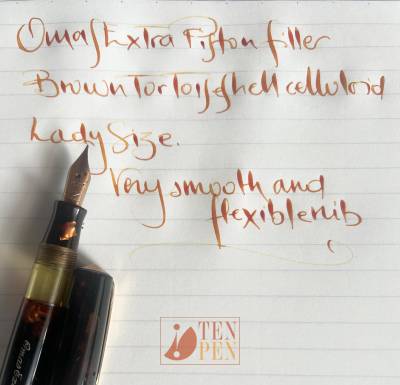 Omas Extra Piston filler
Brown Tortoiseshell celluloid
Lady Size.
Very smooth and
flexible nib
TEN
PEN
Omas Ext